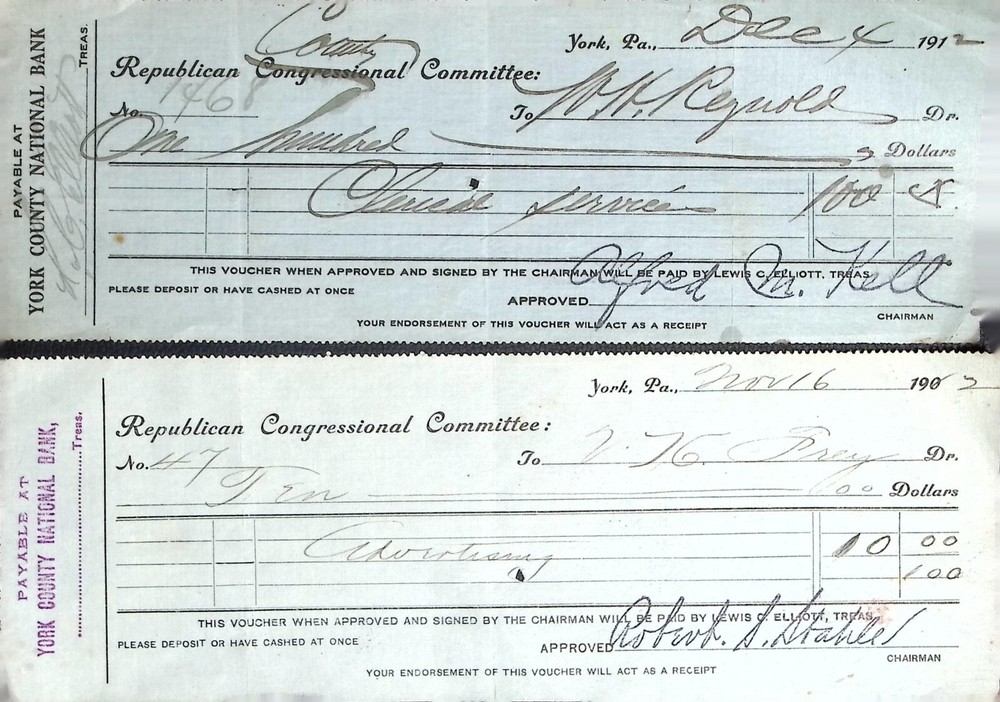 County
York, Pa., Dec 4 1912
Republican Congressional Committee:
No. 1468 To W. H. Reynold Dr.
One hundred Dollars
Clerical services 100
THIS VOUCHER WHEN APPROVED AND SIGNED BY THE CHAIRMAN WILL BE PAID BY LEWIS C. ELLIOTT, TREAS.
PLEASE DEPOSIT OR HAVE CASHED AT ONCE
APPROVED Alfred M. Kell
CHAIRMAN
YOUR ENDORSEMENT OF THIS VOUCHER WILL ACT AS A RECEIPT
PAYABLE AT
YORK COUNTY NATIONAL BANK
TREAS.
York, Pa., Nov 16 1902
Republican Congressional Committee:
No. 47 To K. Frey Dr.
Ten 00 Dollars
Advertising 10 00
100
THIS VOUCHER WHEN APPROVED AND SIGNED BY THE CHAIRMAN WILL BE PAID BY LEWIS C. ELLIOTT, TREAS.
PLEASE DEPOSIT OR HAVE CASHED AT ONCE
APPROVED Robert S. Stahle
CHAIRMAN
YOUR ENDORSEMENT OF THIS VOUCHER WILL ACT AS A RECEIPT
PAYABLE AT
YORK COUNTY NATIONAL BANK,
Treas.